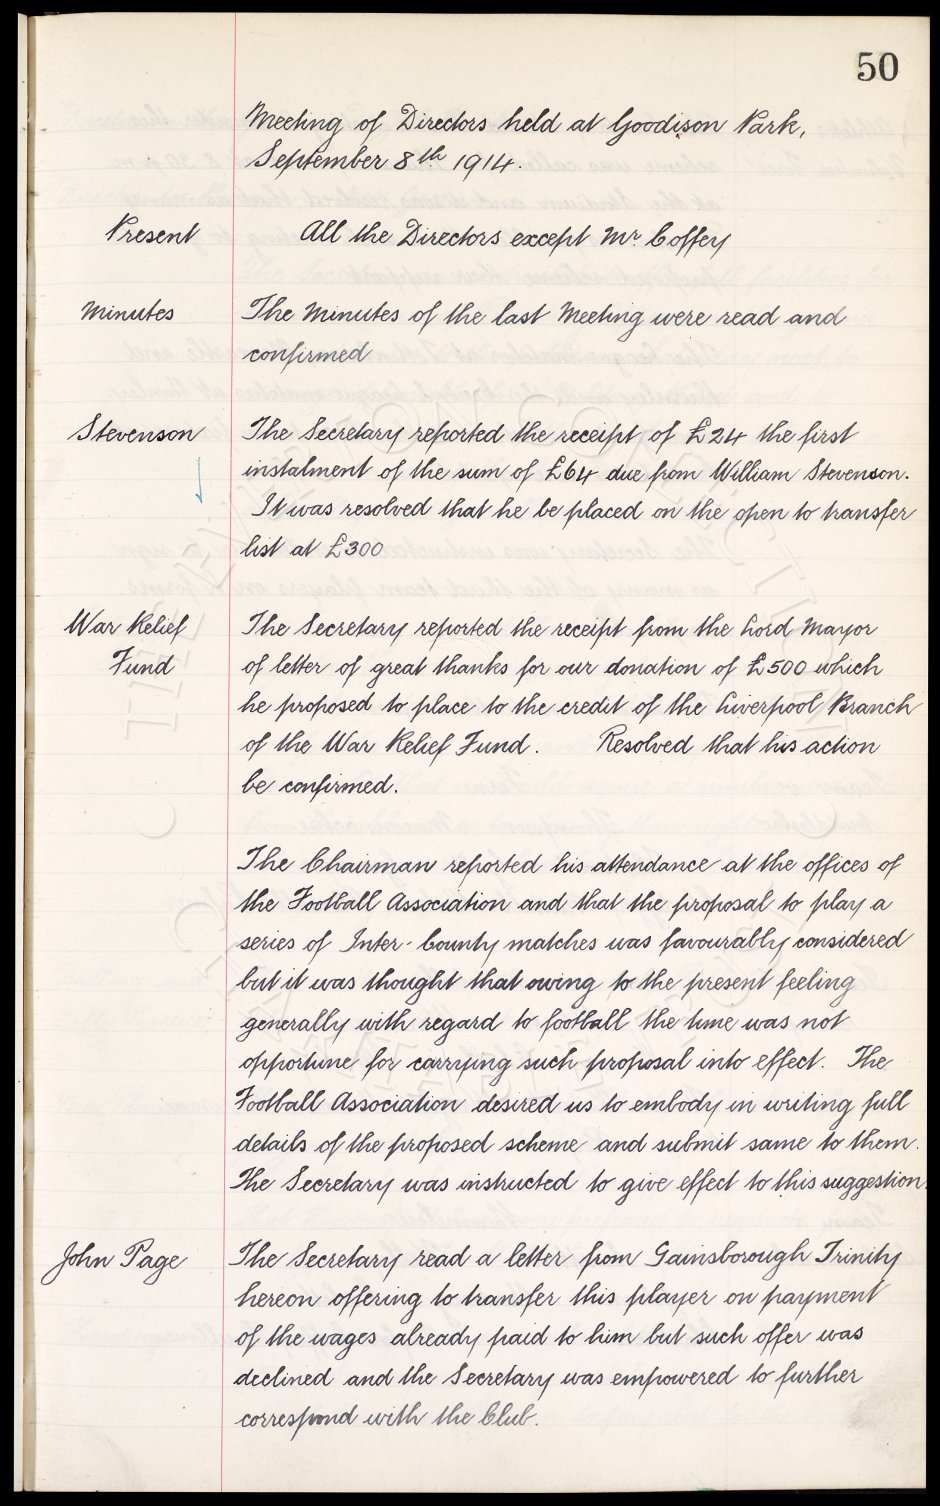 50
Meeting of Directors held at Goodison Park,
September 8th 1914.
Present All the Directors except Mr Coffey
Minutes The Minutes of the last Meeting were read and
confirmed
Stevenson The Secretary reported the receipt of £24 the first
instalment of the sum of £64 due from William Stevenson.
It was resolved that he be placed on the open to transfer
list at £300
War Relief The Secretary reported the receipt from the Lord Mayor
Fund of letter of great thanks for our donation of £500 which
he proposed to place to the credit of the Liverpool Branch
of the War Relief Fund. Resolved that his action
be confirmed.
The Chairman reported his attendance at the offices of
the Football Association and that the proposal to play a
series of Inter-County matches was favourably considered
but it was thought that owing to the present feeling
generally with regard to football the time was not
opportune for carrying such proposal into effect. The
Football Association desired us to embody in writing full
details of the proposed scheme and submit same to them.
The Secretary was instructed to give effect to this suggestion.
John Page The Secretary read a letter from Gainsborough Trinity
hereon offering to transfer this player on payment
of the wages already paid to him but such offer was
declined and the Secretary was empowered to further
correspond with the Club.